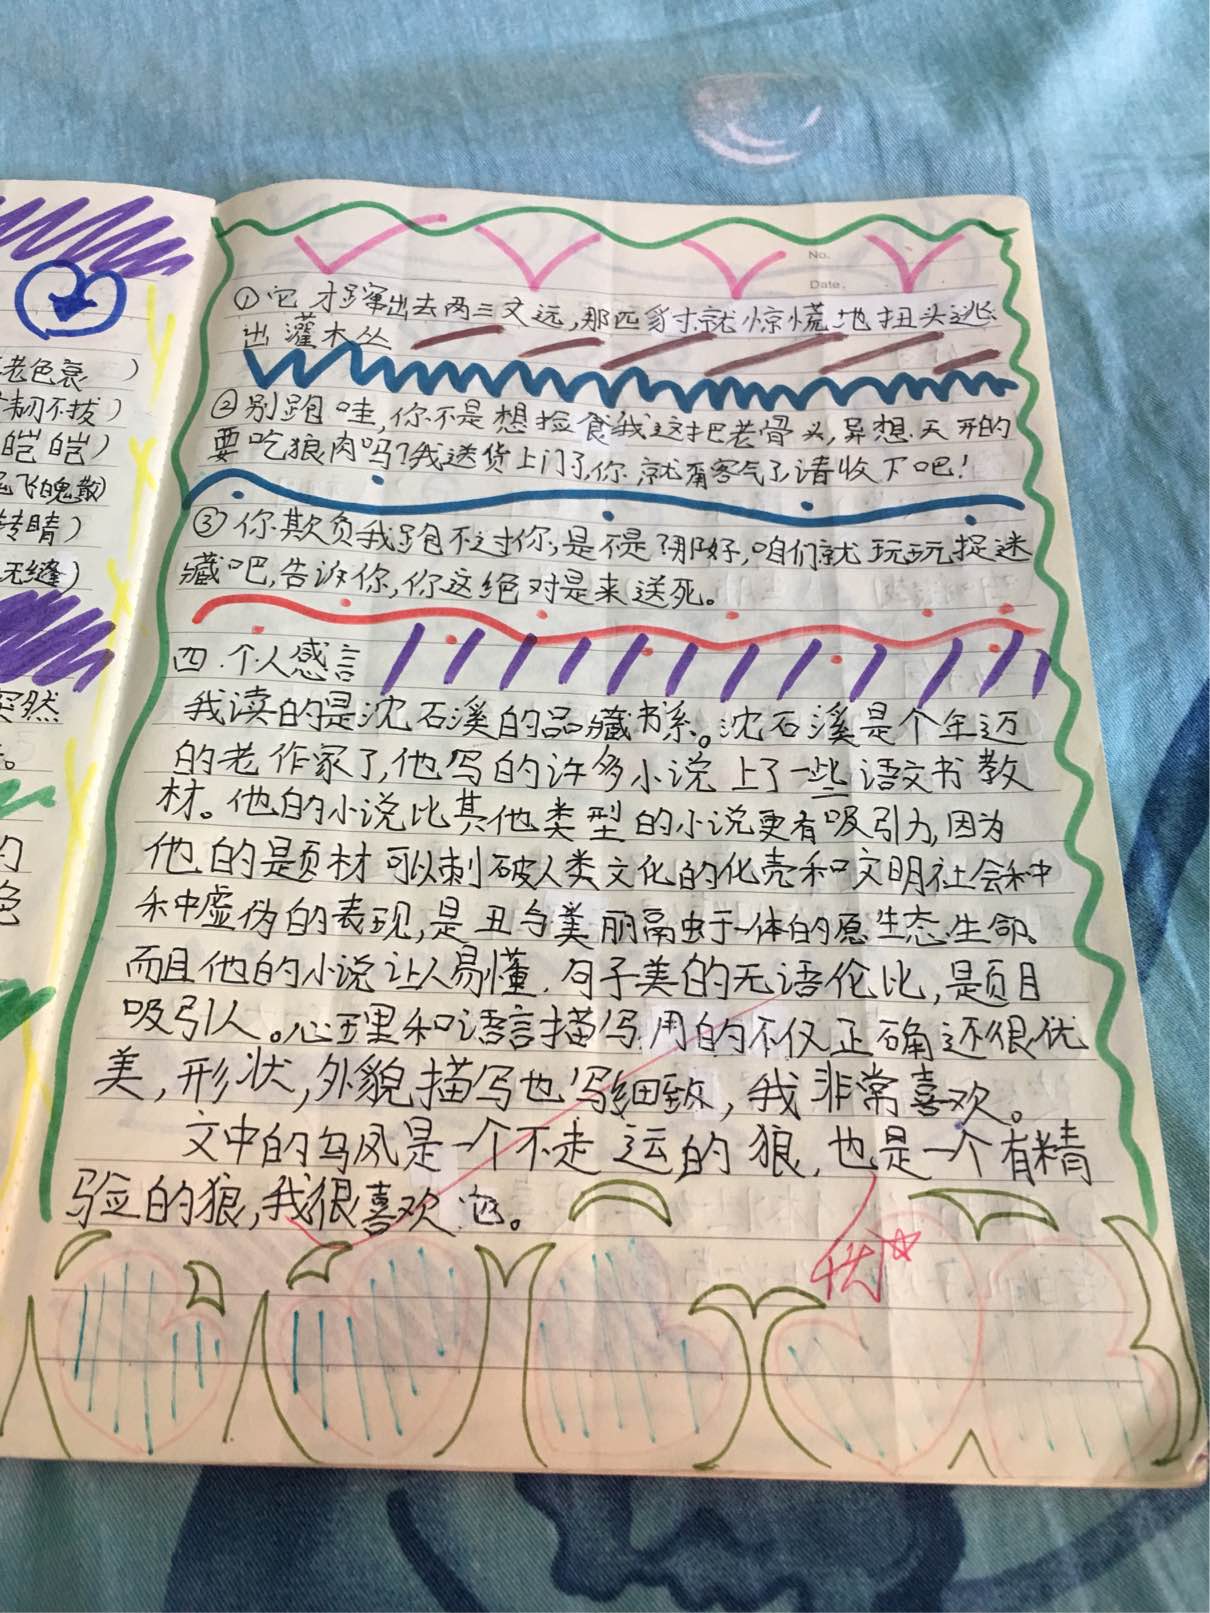 老色衰 )
韧不拔)
皑皑)
飞魄散)
转晴)
无缝)
突然
。
的
色
No.
Date.
①它才蹿出去两三丈远,那匹豺就惊慌地扭头逃
出灌木丛
②别跑哇,你不是想捡食我这把老骨头,异想天开的
要吃狼肉吗?我送货上门了,你就甭客气了请收下吧!
③你欺负我跑不过你,是不是?那好,咱们就玩玩捉迷
藏吧,告诉你,你这绝对是来送死。
四.个人感言
我读的是沈石溪的品藏书系。沈石溪是个年迈
的老作家了,他写的许多小说上了一些语文书教
材。他的小说比其他类型的小说更有吸引力,因为
他的题材可以刺破人类文化的化壳和文明社会种
种虚伪的表现,是丑与美丽融于一体的原生态生命。
而且他的小说让人易懂.句子美的无语伦比,题目
吸引人。心理和语言描写用的不仅正确还很优
美,形状,外貌描写也写细致,我非常喜欢。
文中的乌风是一个不走运的狼,也是一个有精
验的狼,我很喜欢它。
优☆